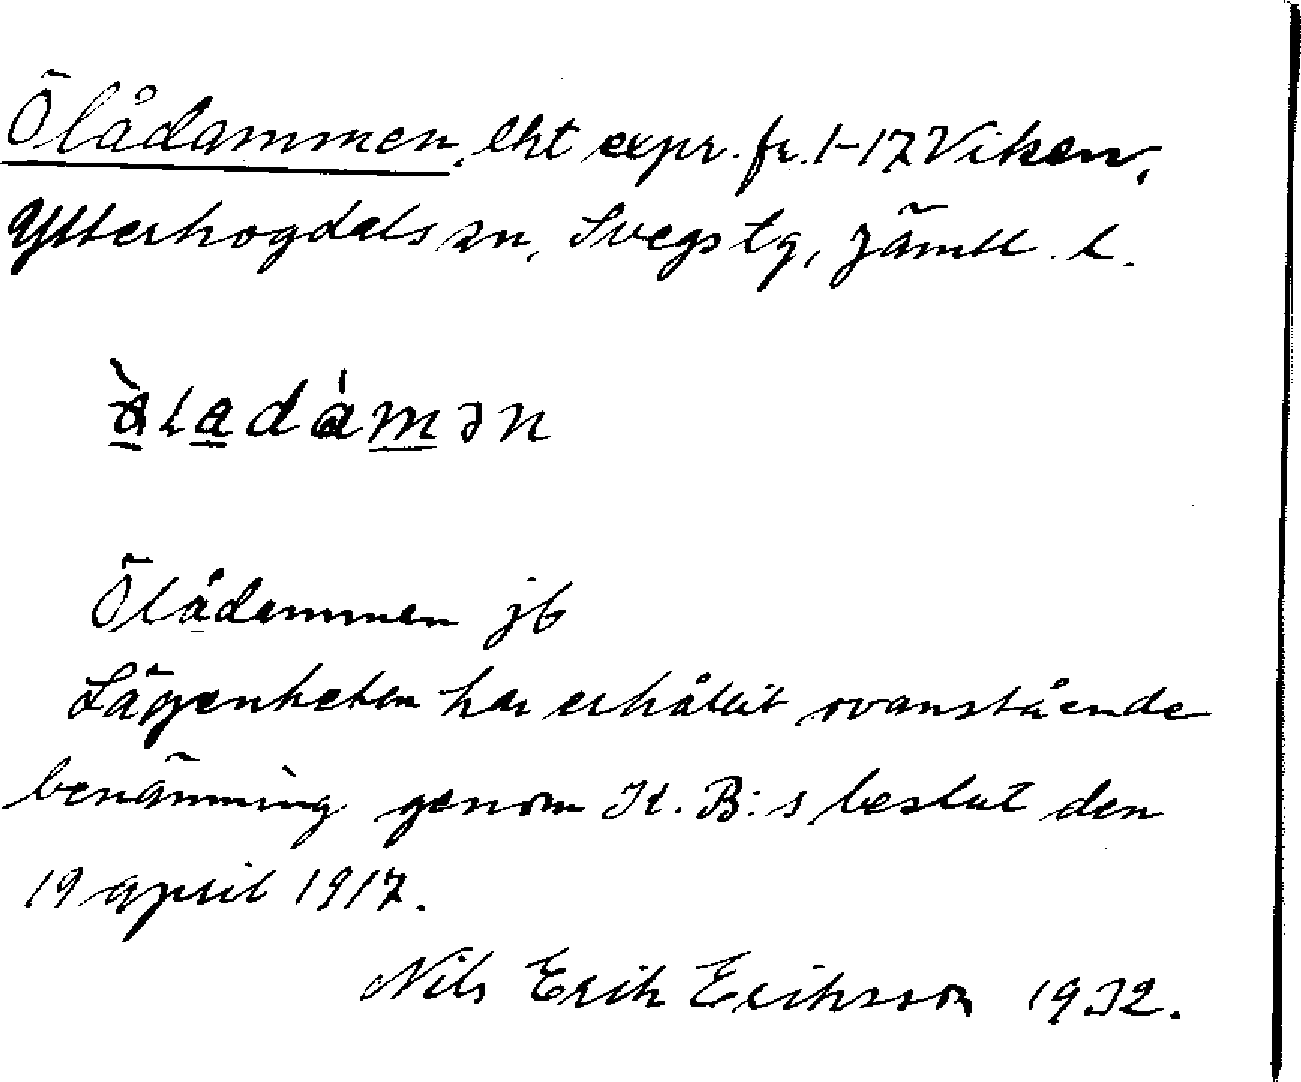 Ölådammen, lht expr. fr. 1-17 Viken,
Ytterhogdals sn, Svegs tg, Jämtl. l.
Ölådammen jb
Lägenheten har erhållit ovanstående
benämning genom K. B:s beslut den
19 april 1917.
Nils Erik Eriksson 1932.